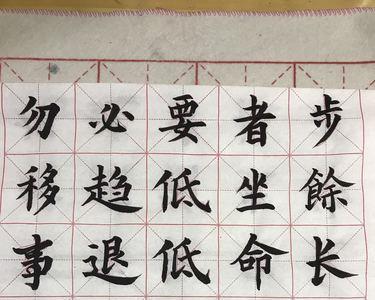 步餘长
者坐命
要低低
必趋退
勿移事